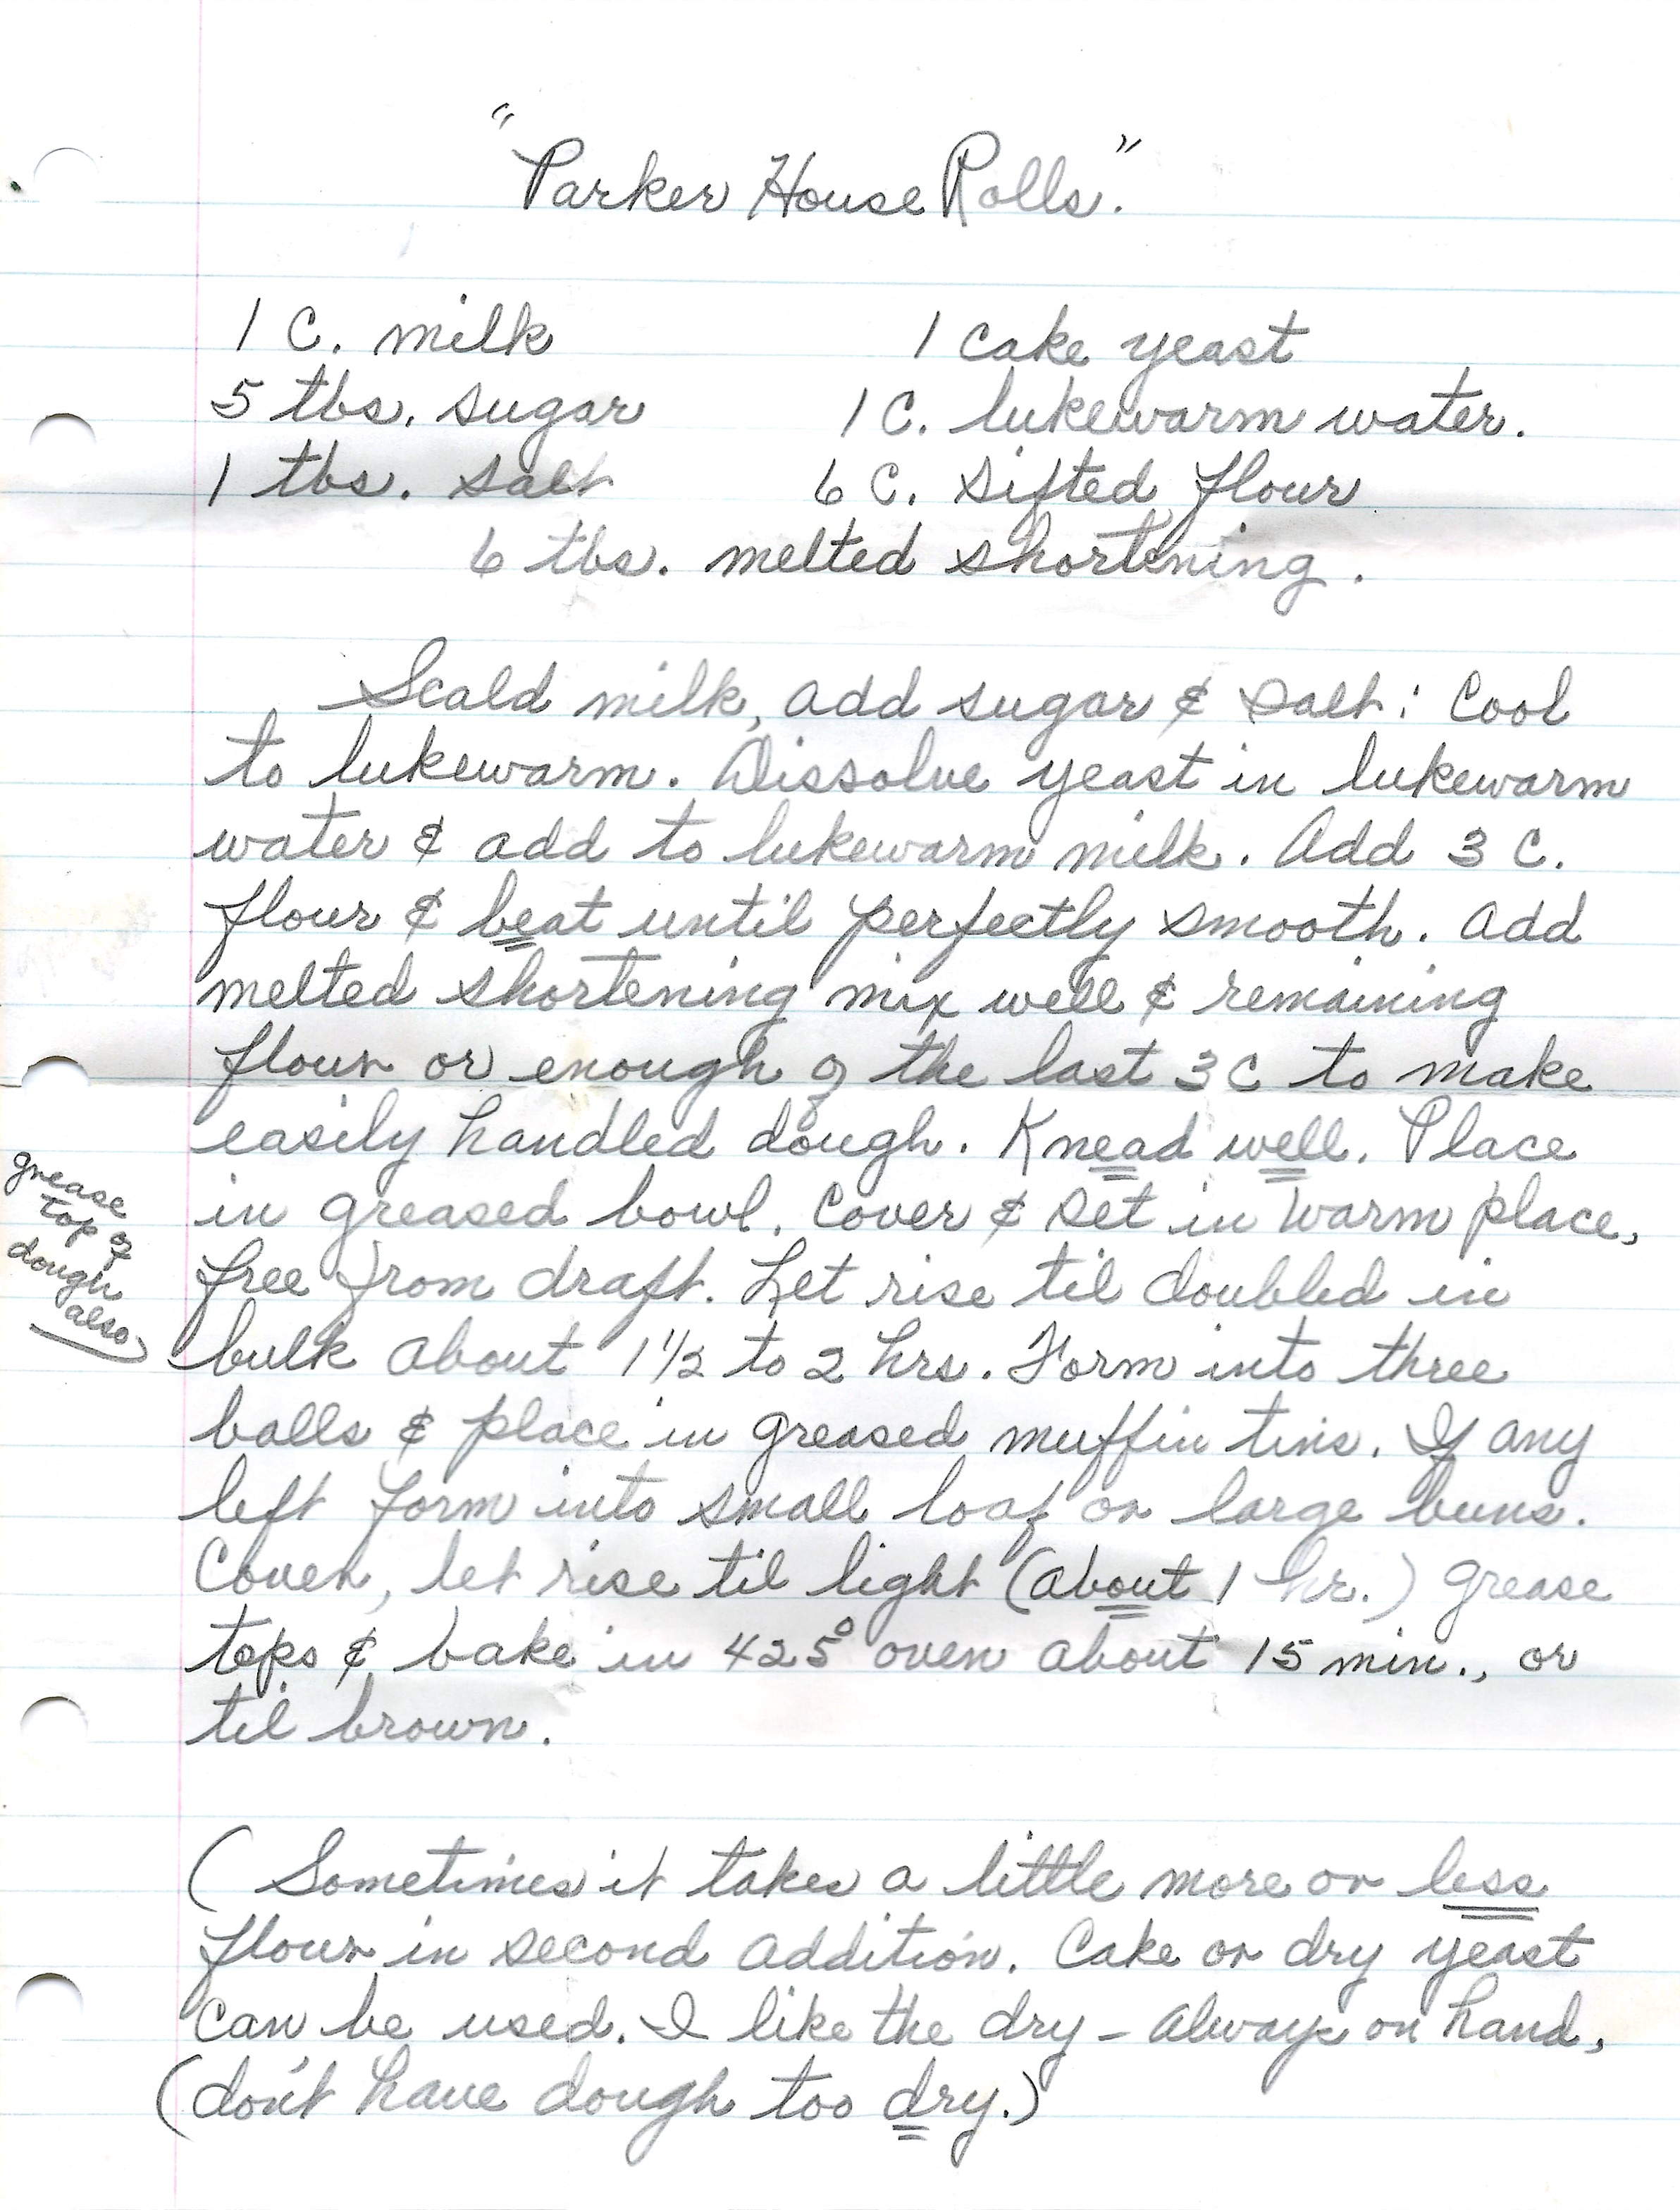 "Parker House Rolls."
1 C. milk 1 cake yeast
5 tbs. sugar 1 C. lukewarm water.
1 tbs. salt 6 C. sifted flour
6 tbs. melted shortening.
Scald milk, add sugar & salt: Cool
to lukewarm. Dissolve yeast in lukewarm
water & add to lukewarm milk. Add 3 C.
flour & beat until perfectly smooth. Add
melted shortening mix well & remaining
flour or enough of the last 3 C to make
easily handled dough. Knead well. Place
in greased bowl. Cover & set in warm place,
free from draft. Let rise til doubled in
bulk about 1 1/2 to 2 hrs. Form into three
balls & place in greased muffin tins. If any
left form into small loaf or large buns.
Cover, let rise til light (about 1 hr.) grease
tops & bake in 425° oven about 15 min., or
til brown.
grease
top of
dough
also
(Sometimes it takes a little more or less
flour in second addition. Cake or dry yeast
can be used. I like the dry - always on hand,
(don't have dough too dry.)